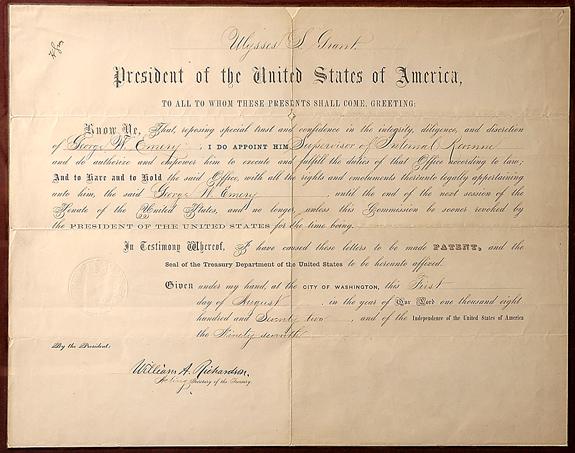 Ulysses S. Grant
President of the United States of America,
TO ALL TO WHOM THESE PRESENTS SHALL COME, GREETING:
Know Ye, That, reposing special trust and confidence in the integrity, diligence, and discretion
of George W. Emery, I DO APPOINT HIM Supervisor of Internal Revenue
and do authorize and empower him to execute and fulfill the duties of that Office according to law;
And to Have and to Hold the said Office, with all the rights and emoluments thereunto legally appertaining
unto him, the said George W. Emery until the end of the next session of the
Senate of the United States, and no longer, unless this Commission be sooner revoked by
the PRESIDENT OF THE UNITED STATES for the time being.
In Testimony Whereof, I have caused these letters to be made PATENT, and the
Seal of the Treasury Department of the United States to be hereunto affixed.
Given under my hand, at the CITY OF WASHINGTON, this First
day of August, in the year of Our Lord one thousand eight
hundred and Seventy two, and of the Independence of the United States of America
the Ninety seventh.
By the President:
William A. Richardson,
Acting Secretary of the Treasury.